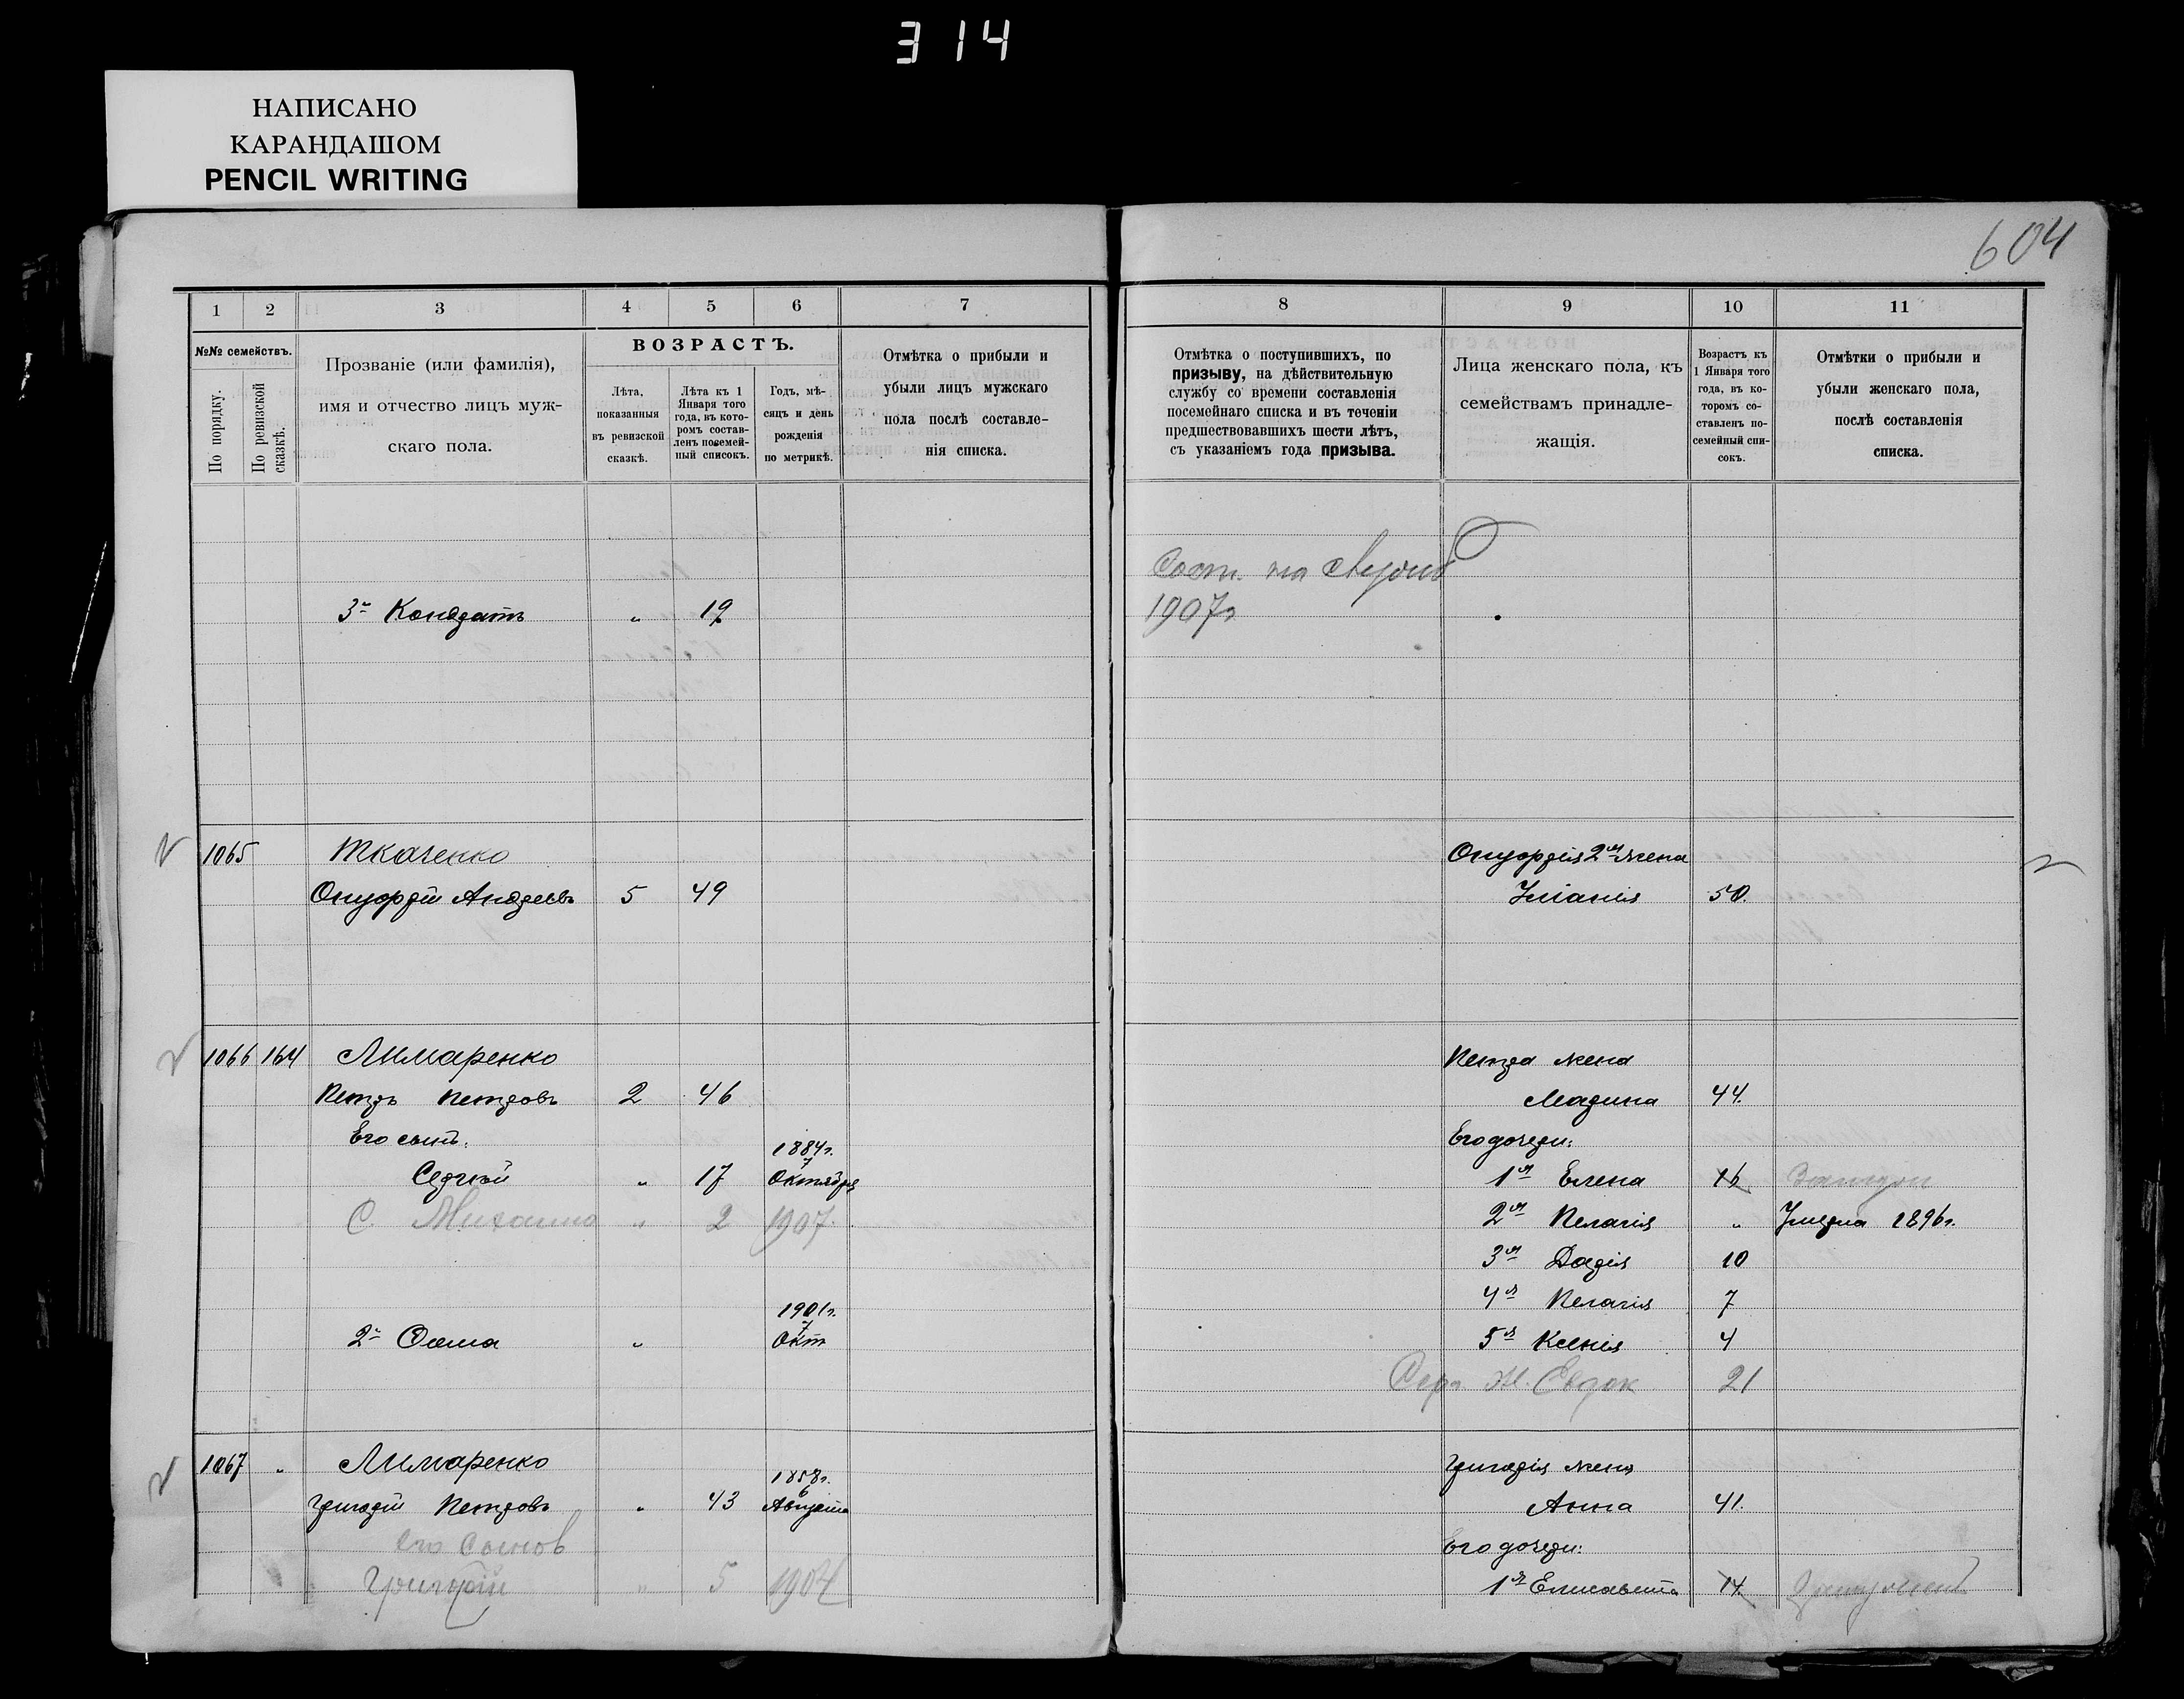 314
НАПИСАНО
КАРАНДАШОМ
PENCIL WRITING
604
1 2 3 4 5 6 7
№№ семействъ.
По порядку.
По ревизской сказкѣ.
Прозваніе (или фамилія),
имя и отчество лицъ муж-
скаго пола.
ВОЗРАСТЪ.
Лѣта,
показанныя
въ ревизской
сказкѣ.
Лѣта къ 1
Января того
года, въ кото-
ромъ состав-
ленъ посемей-
ный списокъ.
Годъ, мѣ-
сяцъ и день
рожденія
по метрикѣ.
Отмѣтка о прибыли и
убыли лицъ мужскаго
пола послѣ составле-
нія списка.
3й Кондратъ " 19
1065 Ткаченко
Онуфрій Андреевъ 5 49
1066 164 Лимаренко
Петръ Петровъ 2 46
Его сынъ:
1884г.
7
Сергѣй " 17 Октября
С. Михаилъ " 2 1907.
1901г.
7
2й Ѳома " Окт
1067 " Лимаренко
1858г.
6
Григорій Петровъ " 43 Августа
Его сынов
Григорій " 5 1904
8 9 10 11
Отмѣтка о поступившихъ, по
призыву, на дѣйствительную
службу со времени составленія
посемейнаго списка и въ теченіи
предшествовавшихъ шести лѣтъ,
съ указаніемъ года призыва.
Лица женскаго пола, къ
семействамъ принадле-
жащія.
Возрастъ къ
1 Января того
года, въ ко-
торомъ со-
ставленъ по-
семейный спи-
сокъ.
Отмѣтки о прибыли и
убыли женскаго пола,
послѣ составленія
списка.
Сост. на
1907г
Онуфрія 2я жена
Уліанія 50.
Петра жена
Марина 44.
Его дочери:
1я Елена 16 Замужъ
2я Пелагія " Умерла 1896г.
3я Дарія 10
4я Пелагія 7
5я Ксенія 4
Серг ж. Евдок 21
Григорія жена
Анна 41.
Его дочери:
1я Елисавета 14.